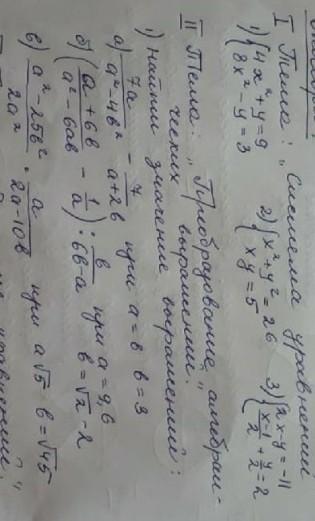 I Тема: „Система уравнений
1) { 4x² + y = 9 2) { x² + y² = 26 3) { 2x - y = -11
{ 8x² - y = 3 { xy = 5 { (x-1)/2 + y/2 = 2
II Тема: „Преобразование алгебраи-
ческих выражений":
1) Найти значение выражений:
а) 7a/(a² - 4b²) - 7/(a + 2b) при a = 8 b = 3
б) ((a + 6b)/(a² - 6ab) - 1/a) : b/(6b - a) при a = 9,6 b = √2 - 2
в) (a² - 25b²)/2a² · a/(2a - 10b) при a √5 b = √45